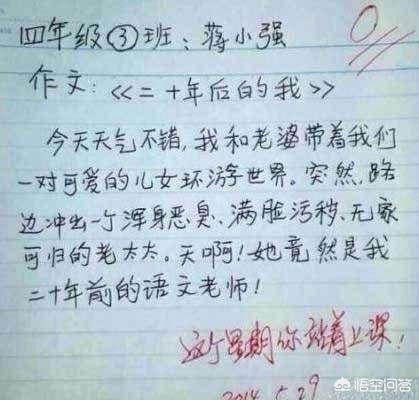 四年级③班：蒋小强
0
作文：《二十年后的我》
今天天气不错，我和老婆带着我们
一对可爱的儿女环游世界。突然，路
边冲出一个浑身恶臭、满脸污秽、无家
可归的老太太。天啊！她竟然是我
二十年前的语文老师！
这个星期你站着上课！
2014.5.29
悟空问答